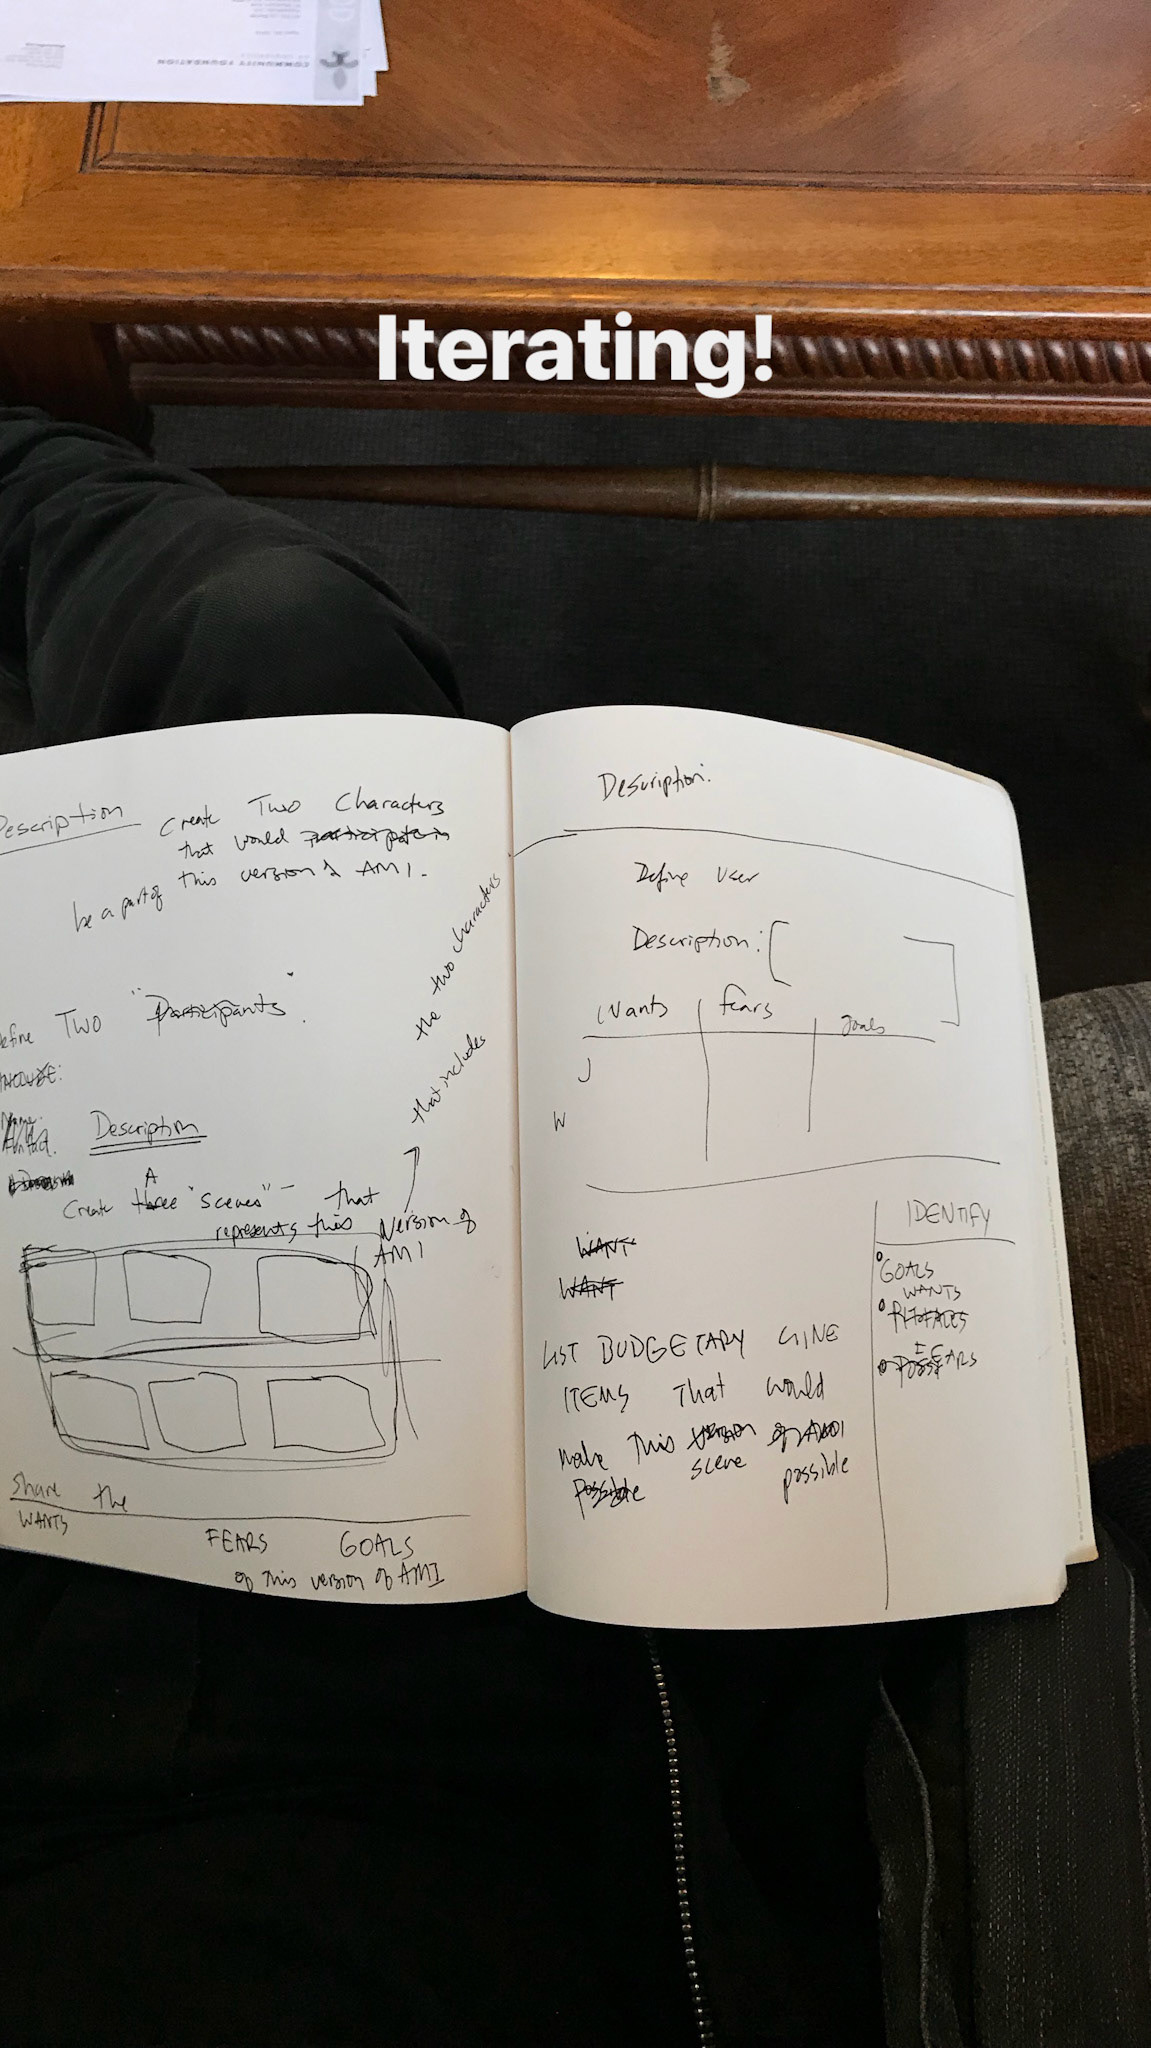 COMMUNITY FOUNDATION
Iterating!
Description
Create Two Characters
that would participate in
be a part of this version of AMI.
Define Two "Participants".
INCLUDE:
Name
Contact
Description
A
Create three "scenes" - that
represents this version of
AMI
that includes the two characters
Share the
WANTS FEARS GOALS
of this version of AMI
Description:
Define User
Description: [ ]
Wants Fears Goals
J
W
WANT
WANT
LIST BUDGETARY LINE
ITEMS That would
make this version of AMI
possible scene possible
IDENTIFY
GOALS
WANTS
FEARS